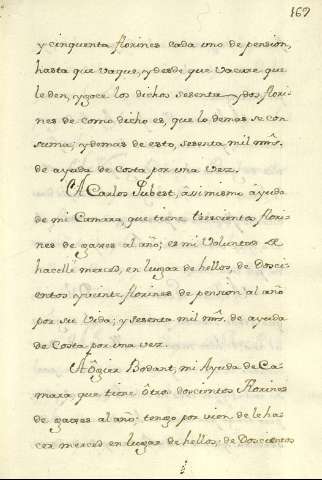 169
y cinquenta florines cada uno de pension,
hasta que vaque, y desde que vacare que
le den, y goce los dichos sesenta y dos flori-
nes de como dicho es, que lo demas se con
suma; y demas de esto, sesenta mil mrs.
de ayuda de Costa por una vez.
A Carlos Tubest, assimismo ayuda
de mi Camara que tiene trescientos flori-
nes de gaxes al año; es mi Voluntad de
hacelle merced, en lugar de hellos, de Dosci-
entos y veinte florines de pension al año
por su Vida; y sesenta mil mrs. de ayuda
de Costa por una vez.
A Ogier Bodart, mi Ayuda de Ca-
mara que tiene otros doscientos Florines
de gages al año: tengo por vien de leha-
cer merced en lugar de hellos; de Doscientos